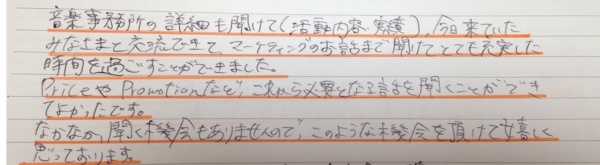 音楽事務所の詳細も聞けて(活動内容・実績)、今日来ていた
みなさまと交流できて、マーケティングのお話まで聞けてとても充実した
時間を過ごすことができました。
PriceやPromotionなど、これから必要となる話を聞くことができ
てよかったです。
なかなか聞く機会もありませんので、このような機会を頂けて嬉しく
思っております。